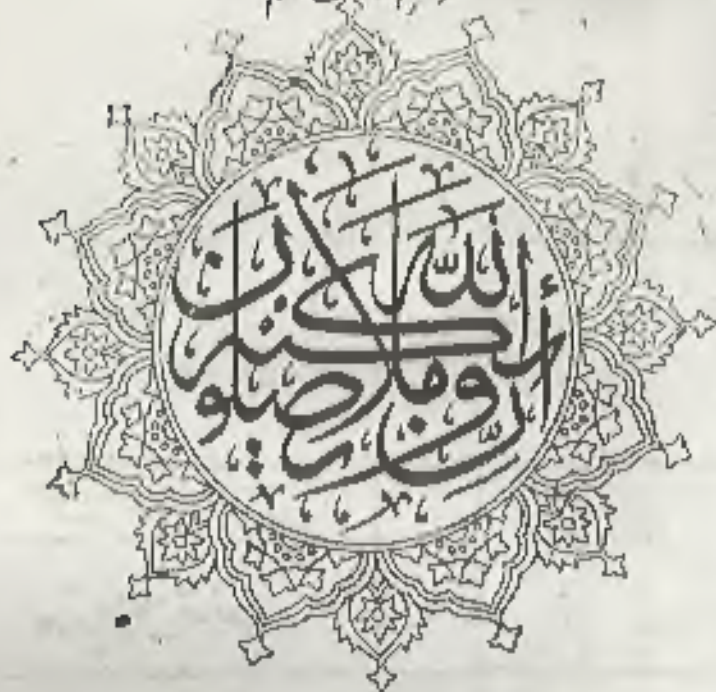 إن الله وملائكته يصلون